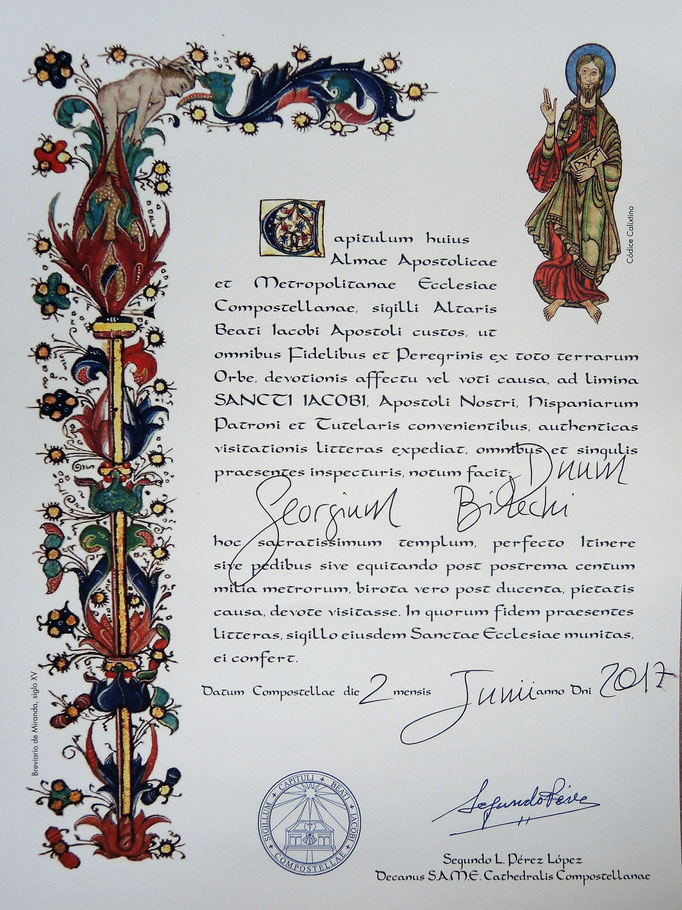 Códice Calixtino
Capitulum huius
Almae Apostolicae
et Metropolitanae Ecclesiae
Compostellanae, sigilli Altaris
Beati Iacobi Apostoli custos, ut
omnibus Fidelibus et Peregrinis ex toto terrarum
Orbe, devotionis affectu vel voti causa, ad limina
SANCTI IACOBI, Apostoli Nostri, Hispaniarum
Patroni et Tutelaris convenientibus, authenticas
visitationis litteras expediat, omnibus et singulis
praesentes inspecturis, notum facit: Dnum
Georgium
hoc sacratissimum templum, perfecto Itinere
sive pedibus sive equitando post postrema centum
milia metrorum, birota vero post ducenta, pietatis
causa, devote visitasse. In quorum fidem praesentes
litteras, sigillo eiusdem Sanctae Ecclesiae munitas,
ei confert.
Datum Compostellae die 2 mensis Junii anno Dni 2017
Breviario de Miranda, siglo XV
SIGILLUM CAPITULI BEATI IACOBI COMPOSTELLAE
Segundo Pérez
Segundo L. Pérez López
Decanus S.A.M.E. Cathedralis Compostellanae